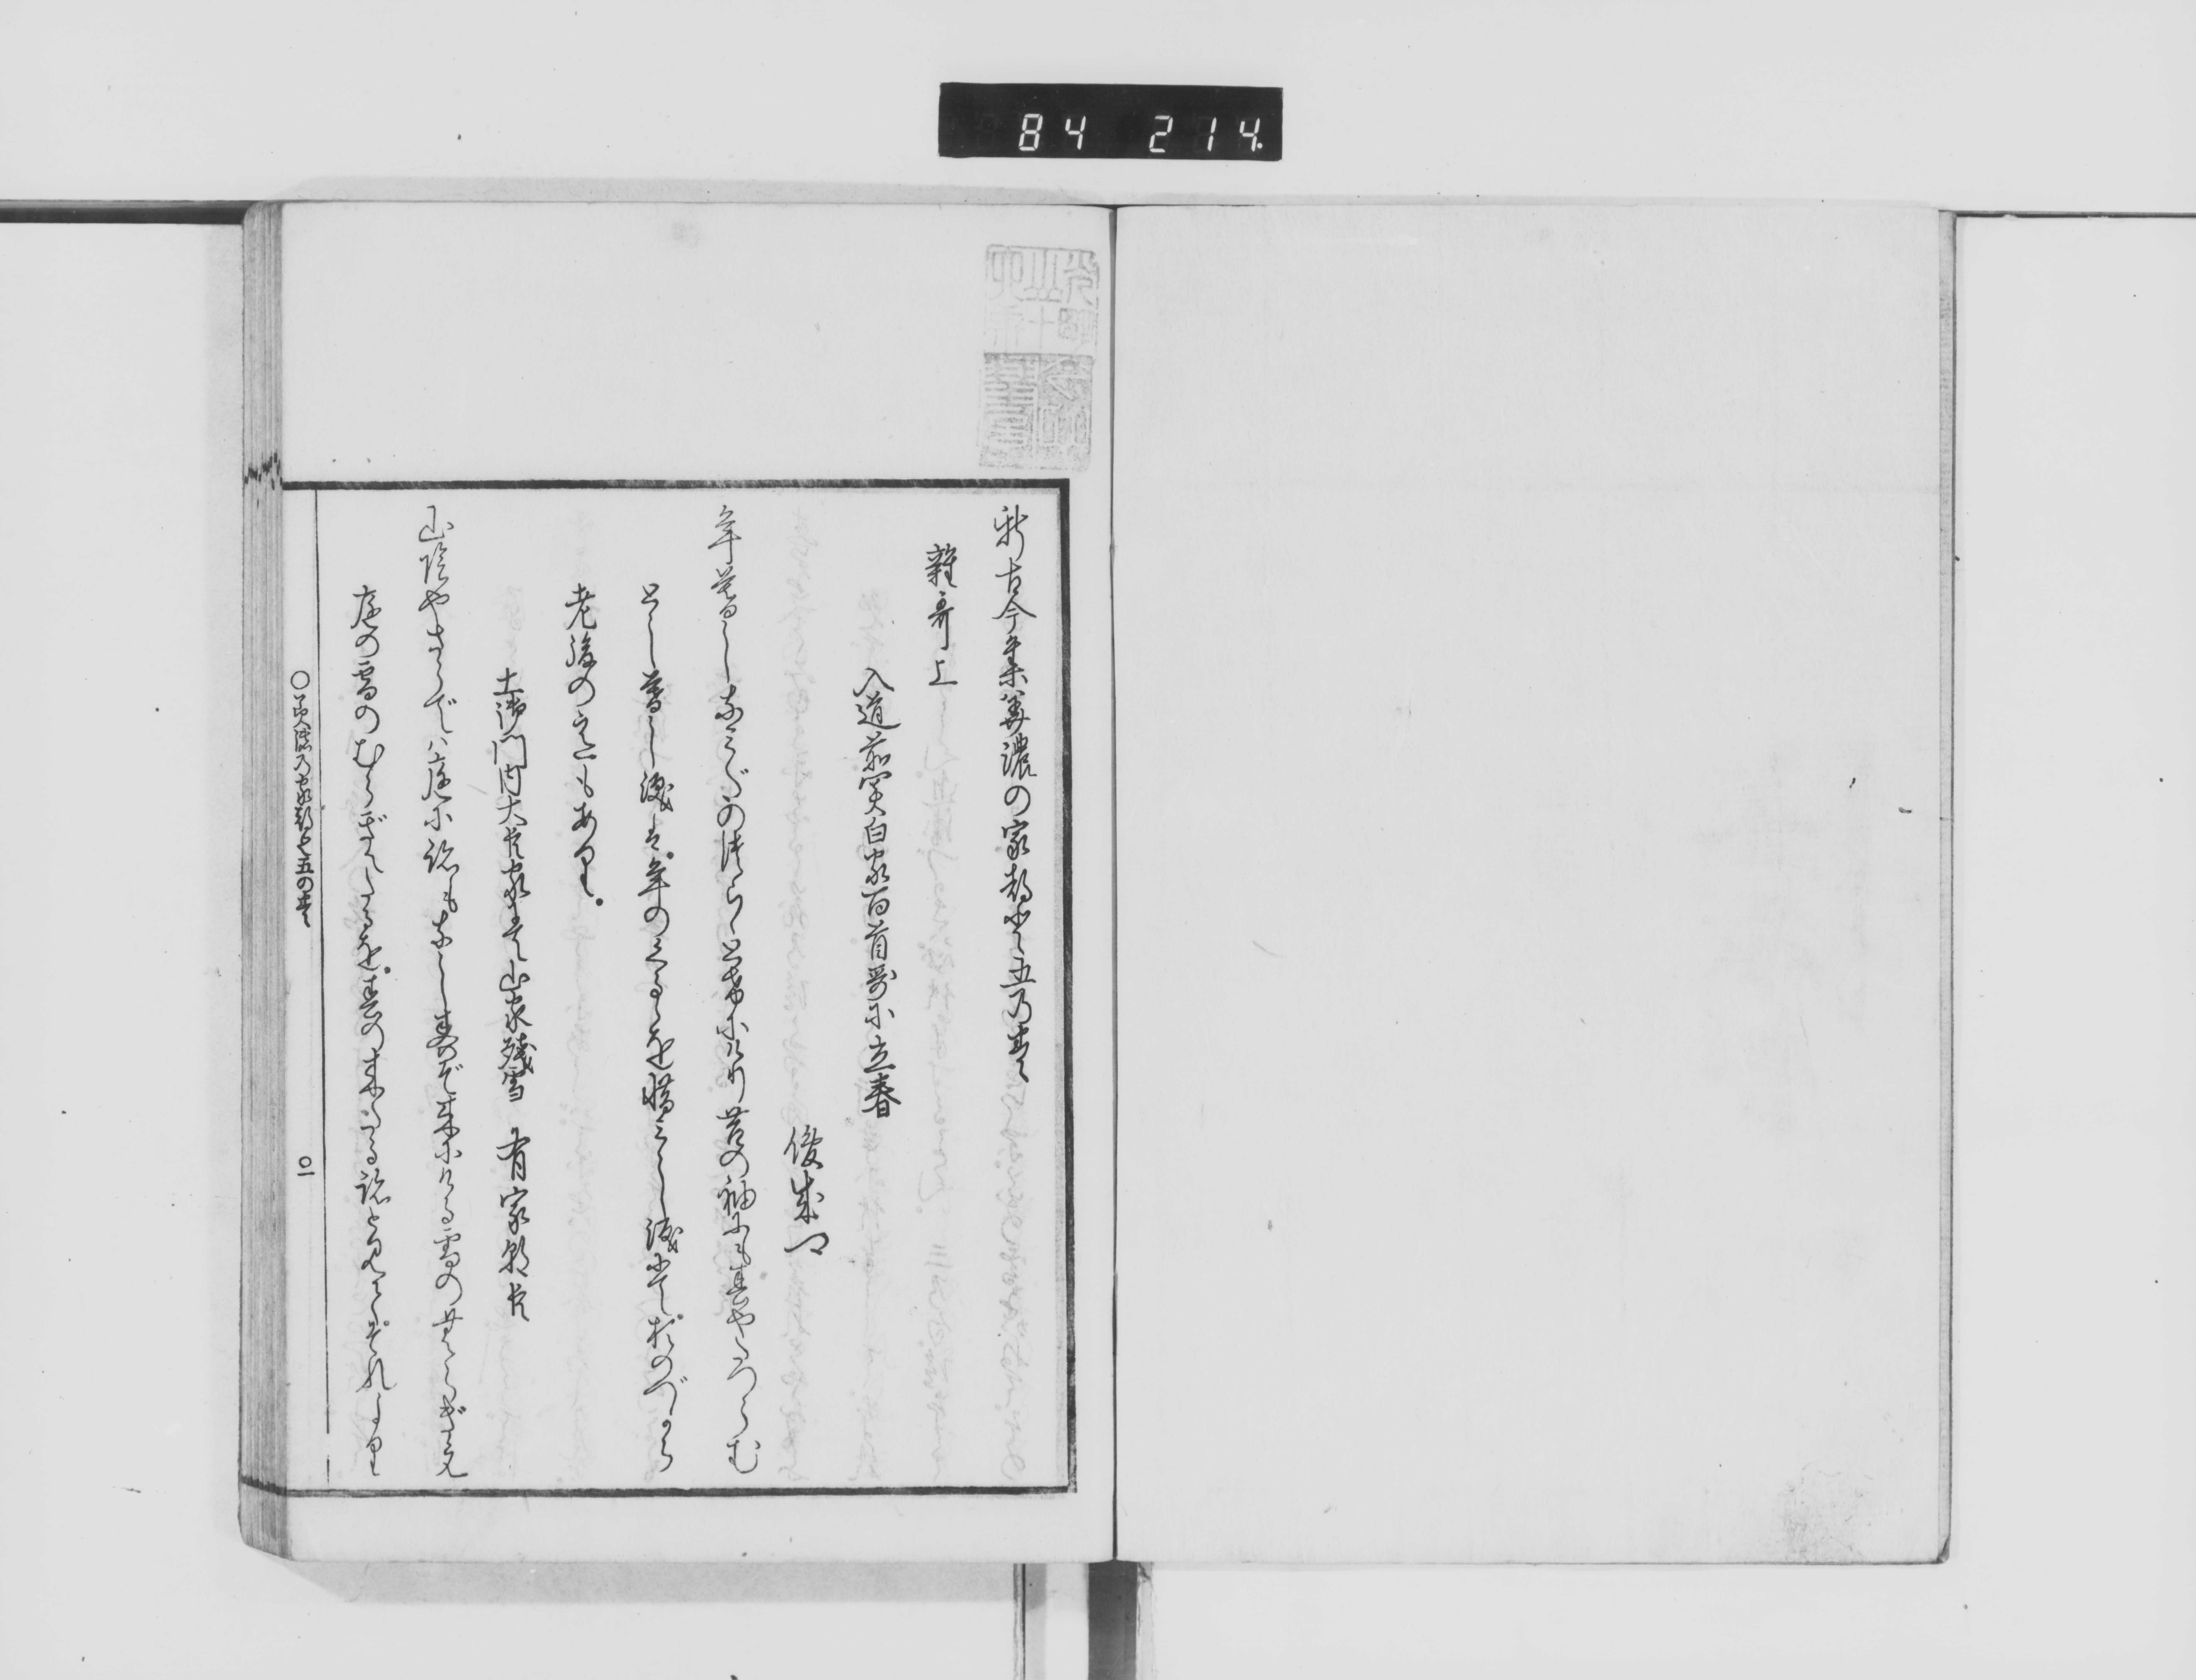 84 214
新古今集美濃の家都と五乃巻
雑哥上
入道前関白家百首哥に立春
俊成卿
年暮しなみだのつらゝとけにけり苔の袖にも春やたつらむ
とし暮し涙は。年のくるゝを惜みし涙にて。おのづから
老後の意もあり。
土御門内大臣家にて山家残雪 有家朝臣
山陰やさらでは庭に跡もなし春ぞ来にける雪のむらぎえ
庭の雪のむらぎえたるを。春の来たる跡と見て。それより
○美濃乃家都と五の巻 ○一